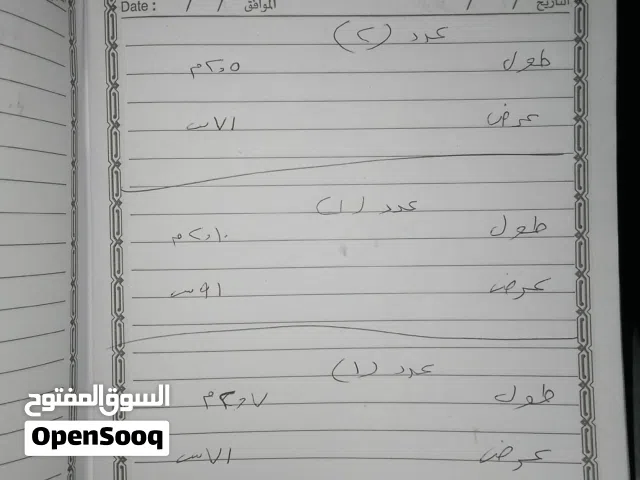 Date : / / الموافق / / التاريخ
عدد (٢)
طول ٢,٠٥ م
عرض ٧١ س
عدد (١)
طول ٢,١٠ م
عرض ٩١ س
عدد (١)
طول ٢,٠٧ م
عرض ٧١ س
السوق المفتوح
OpenSooq